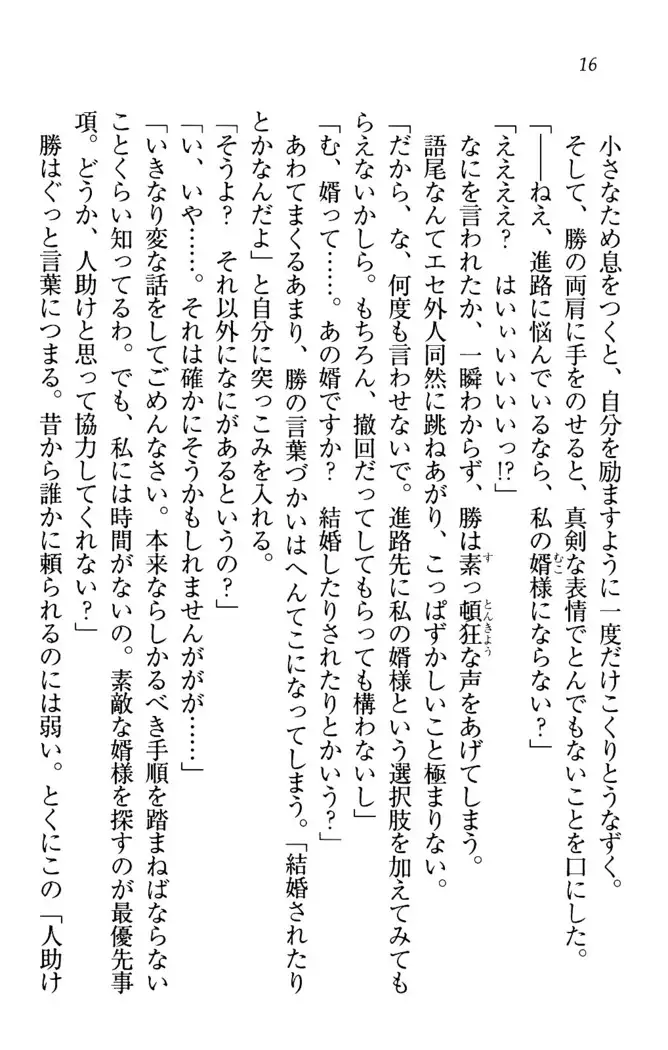 16
小さなため息をつくと、自分を励ますように一度だけこくりとうなずく。
そして、勝の両肩に手をのせると、真剣な表情でとんでもないことを口にした。
「――ねえ、進路に悩んでいるなら、私の婿様にならない？」
「ええええ？　はいぃいいいいっ!?」
なにを言われたか、一瞬わからず、勝は素っ頓狂な声をあげてしまう。
語尾なんてエセ外人同然に跳ねあがり、こっぱずかしいこと極まりない。
「だから、な、何度も言わせないで。進路先に私の婿様という選択肢を加えてみても
らえないかしら。もちろん、撤回だってしてもらっても構わないし」
「む、婿って……。あの婿ですか？　結婚したりされたりとかいう？」
あわてまくるあまり、勝の言葉づかいはへんてこになってしまう。「結婚されたり
とかなんだよ」と自分に突っこみを入れる。
「そうよ？　それ以外になにがあるというの？」
「い、いや……。それは確かにそうかもしれませんががが……」
「いきなり変な話をしてごめんなさい。本来ならしかるべき手順を踏まねばならない
ことくらい知ってるわ。でも、私には時間がないの。素敵な婿様を探すのが最優先事
項。どうか、人助けと思って協力してくれない？」
勝はぐっと言葉につまる。昔から誰かに頼られるのには弱い。とくにこの「人助け